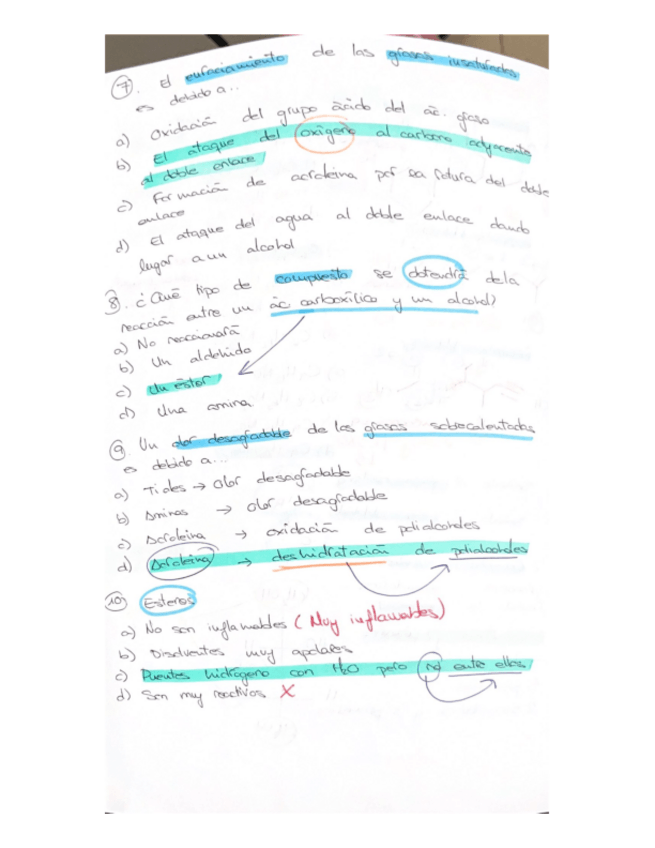 7. El enranciamiento de las grasas insaturadas
es debido a..
a) Oxidación del grupo ácido del ác. graso
b) El ataque del oxígeno al carbono adyacente
al doble enlace
c) Formación de acroleina por la rotura del doble
enlace
d) El ataque del agua al doble enlace dando
lugar a un alcohol
8. ¿Qué tipo de compuesto se obtendrá de la
reacción entre un ác carboxílico y un alcohol?
a) No reaccionará
b) Un aldehido
c) Un éster
d) Una amina
9. Un olor desagradable de las grasas sobrecalentadas
es debido a...
a) Tioles → olor desagradable
b) Aminas → olor desagradable
c) Acroleina → oxidación de polialcoholes
d) Acroleina → deshidratación de polialcoholes
10) Esteres
a) No son inflamables (Muy inflamables)
b) Disolventes muy apolares
c) Puentes hidrógeno con H2O pero no entre ellos
d) Son muy reactivos X